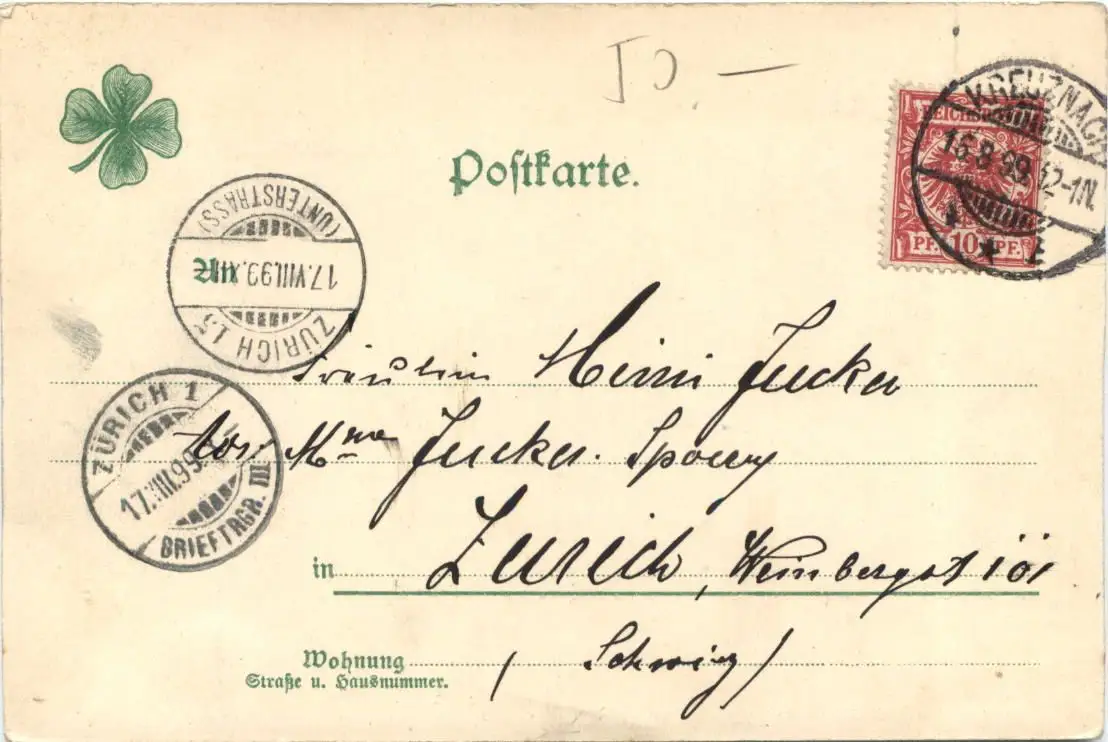 50.—
Postkarte.
REICHSPOST
PF. 10 PF.
KREUZNACH
16.8.99.12-1N.
★ 1
(UNTERSTRASS)
17.VIII.99.XII
ZÜRICH 15
An
Fräulein Jucker
ZÜRICH 1
17.VIII.99
BRIEFTRGR. III
Mme Jucker. Spoerry
in Zurich, Weinbergst 101
Wohnung (Schweiz)
Straße u. Hausnummer.